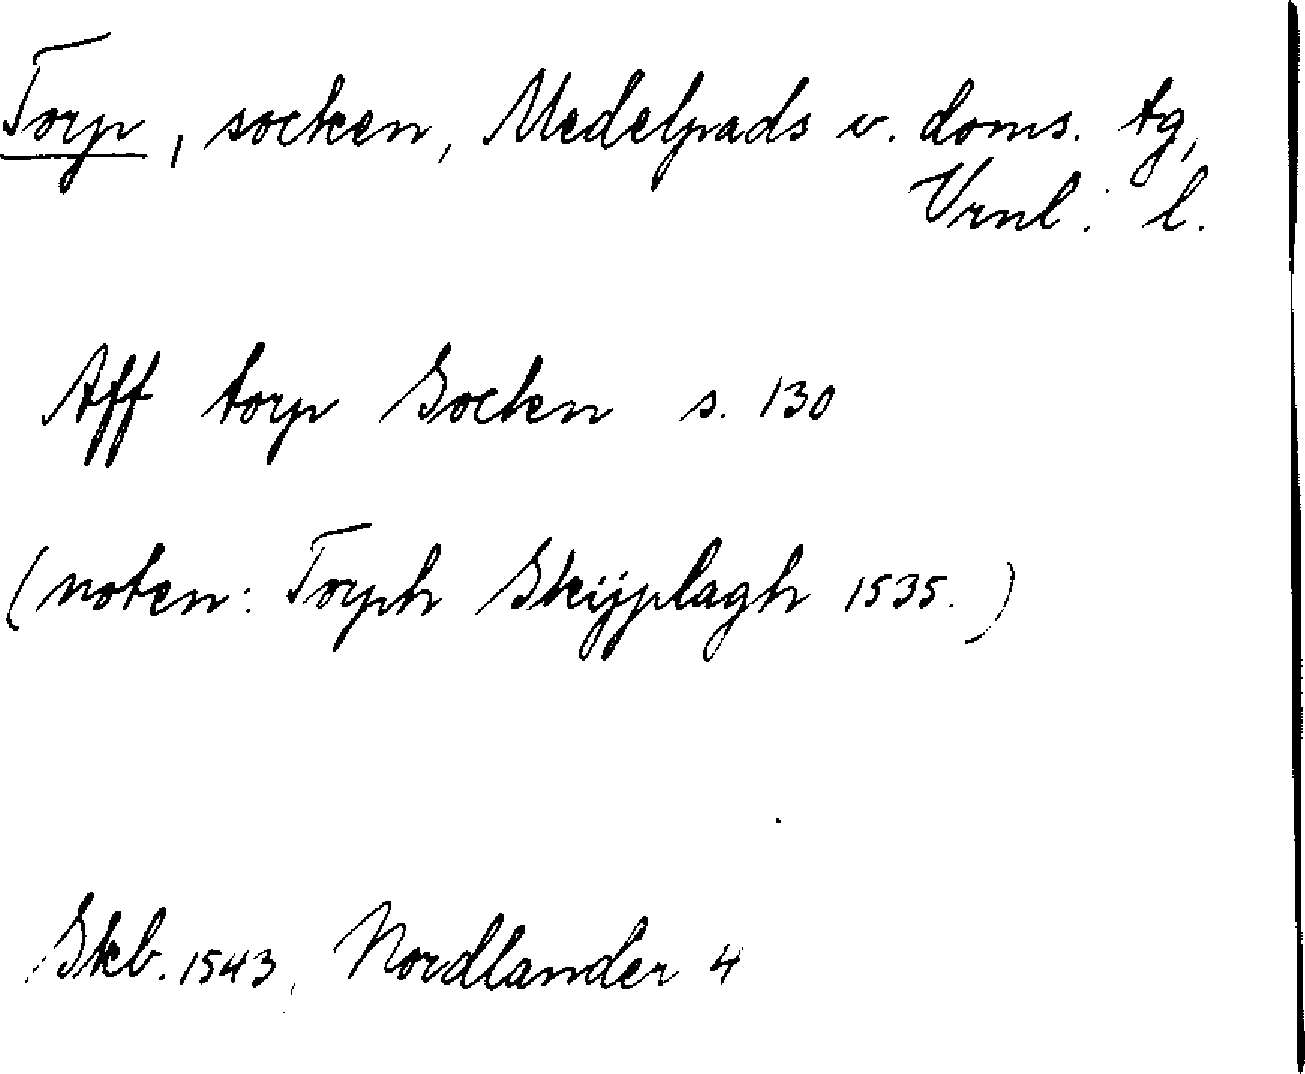 Torp, socken, Medelpads v. doms. tg,
Vrnl. l.
Aff torp Socken s. 130
(noten: Torph Skijplagh 1535.)
Skb. 1543, Nordlander 4